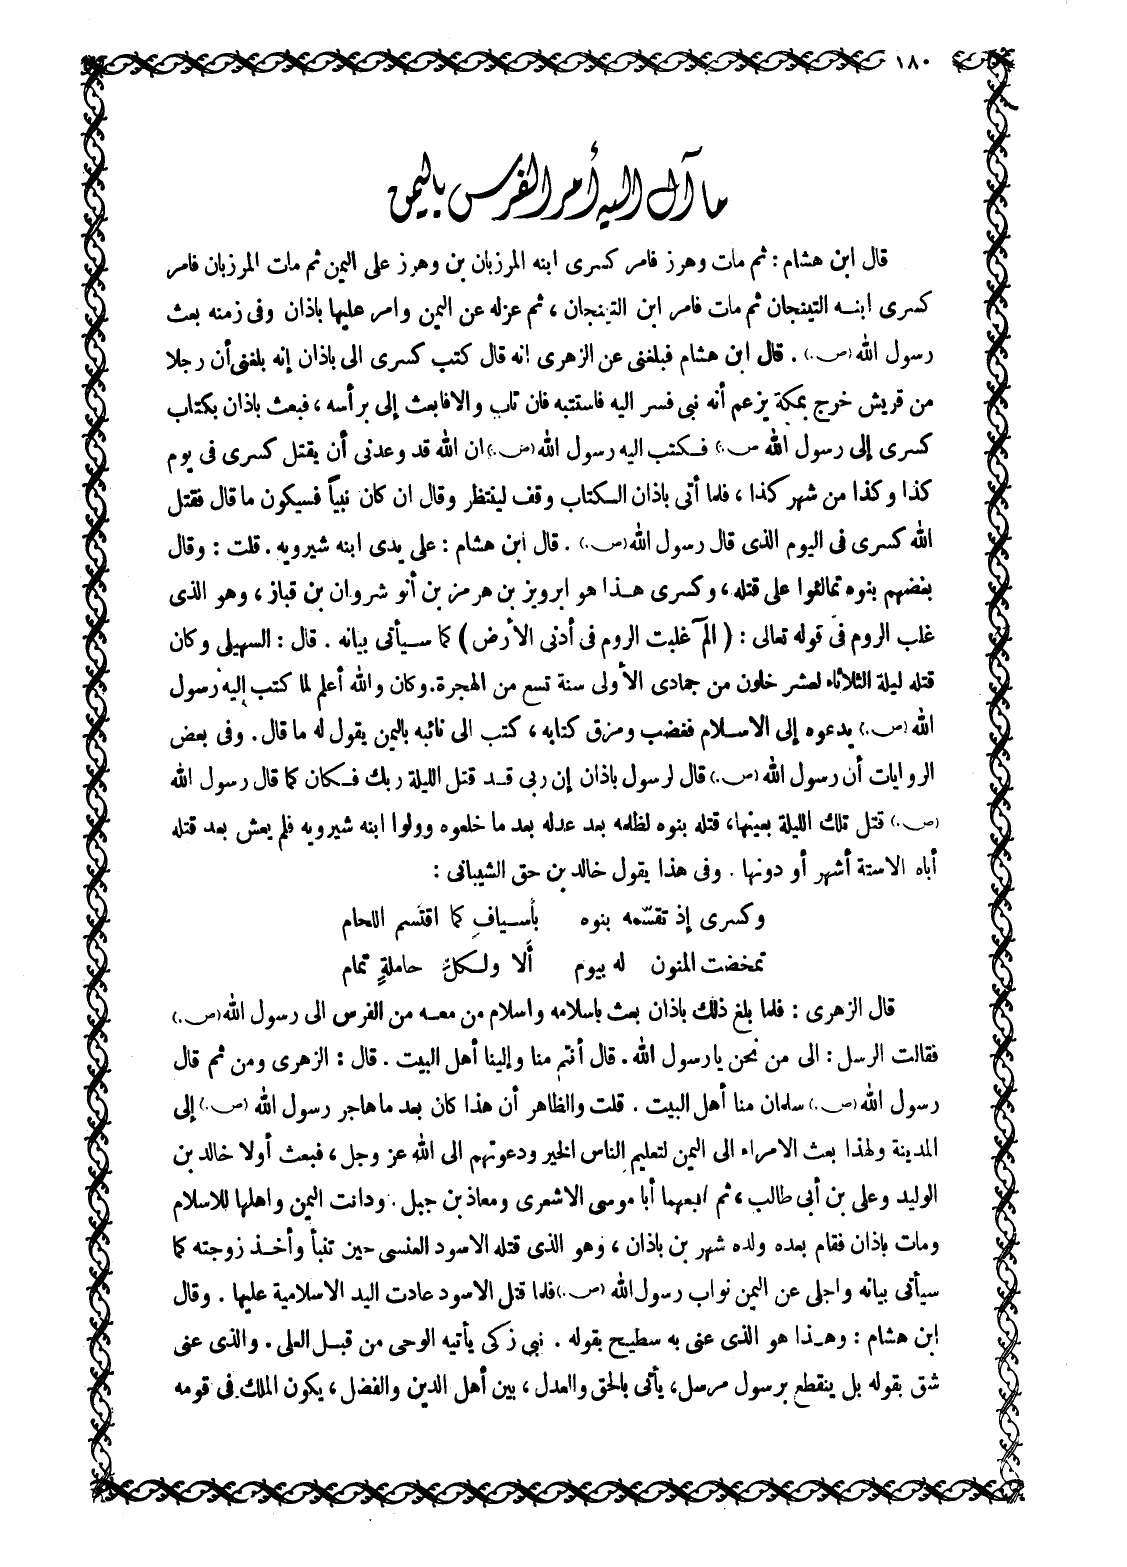 ١٨٠
ما آل اليه أمر الفرس باليمن
قال ابن هشام : ثم مات وهرز فامر كسرى ابنه المرزبان بن وهرز على اليمن ثم مات المرزبان فامر
كسرى ابنه التينجان ثم مات فامر ابن التينجان ، ثم عزله عن اليمن وامر عليها باذان وفى زمنه بعث
رسول الله (ص.) . قال ابن هشام فبلغنى عن الزهرى انه قال كتب كسرى الى باذان إنه بلغنى أن رجلا
من قريش خرج بمكة يزعم أنه نبى فسر اليه فاستتبه فان تاب والا فابعث إلى برأسه ، فبعث باذان بكتاب
كسرى إلى رسول الله ص.) فكتب اليه رسول الله (ص.) ان الله قد وعدنى أن يقتل كسرى فى يوم
كذا وكذا من شهر كذا ، فلما أتى باذان الكتاب وقف لينتظر وقال ان كان نبياً فسيكون ما قال فقتل
الله كسرى فى اليوم الذى قال رسول الله (ص.) . قال ابن هشام : على يدى ابنه شيرويه . قلت : وقال
بعضهم بنوه تمالئوا على قتله ، وكسرى هذا هو ابرويز بن هرمز بن أنو شروان بن قباز ، وهو الذى
غلب الروم فى قوله تعالى : ( الٓمٓ غلبت الروم فى أدنى الأرض ) كما سيأتى بيانه . قال : السهيلى وكان
قتله ليلة الثلاثاء لعشر خلون من جمادى الأولى سنة تسع من الهجرة . وكان والله أعلم لما كتب إليه رسول
الله (ص.) يدعوه إلى الاسلام فغضب ومزق كتابه ، كتب الى نائبه باليمن يقول له ما قال . وفى بعض
الروايات أن رسول الله (ص.) قال لرسول باذان إن ربى قد قتل الليلة ربك فكان كما قال رسول الله
(ص.) قتل تلك الليلة بعينها ، قتله بنوه لظلمه بعد عدله بعد ما خلعوه وولوا ابنه شيرويه فلم يعش بعد قتله
أباه الاستة أشهر أو دونها . وفى هذا يقول خالد بن حق الشيبانى :
وكسرى إذ تقسّمه بنوه بأسيافٍ كما اقتسم اللحام
تمخضت المنون له بيوم ألا ولكلِّ حاملةٍ تمام
قال الزهرى : فلما بلغ ذلك باذان بعث باسلامه واسلام من معه من الفرس الى رسول الله (ص.)
فقالت الرسل : الى من نحن يا رسول الله . قال أنتم منا وإلينا أهل البيت . قال : الزهرى ومن ثم قال
رسول الله (ص.) سلمان منا أهل البيت . قلت والظاهر أن هذا كان بعد ما هاجر رسول الله (ص.) إلى
المدينة ولهذا بعث الامراء الى اليمن لتعليم الناس الخير ودعوتهم الى الله عز وجل ، فبعث أولا خالد بن
الوليد وعلى بن أبى طالب ، ثم اتبعهما أبا موسى الاشعرى ومعاذ بن جبل . ودانت اليمن واهلها للاسلام
ومات باذان فقام بعده ولده شهر بن باذان ، وهو الذى قتله الاسود العنسى حين تنبأ وأخذ زوجته كما
سيأتى بيانه واجلى عن اليمن نواب رسول الله (ص.) فلما قتل الاسود عادت اليد الاسلامية عليها . وقال
ابن هشام : وهذا هو الذى عنى به سطيح بقوله . نبى زكى يأتيه الوحى من قبل العلى . والذى عنى
شق بقوله بل ينقطع برسول مرسل ، يأتى بالحق والعدل ، بين أهل الدين والفضل ، يكون الملك فى قومه